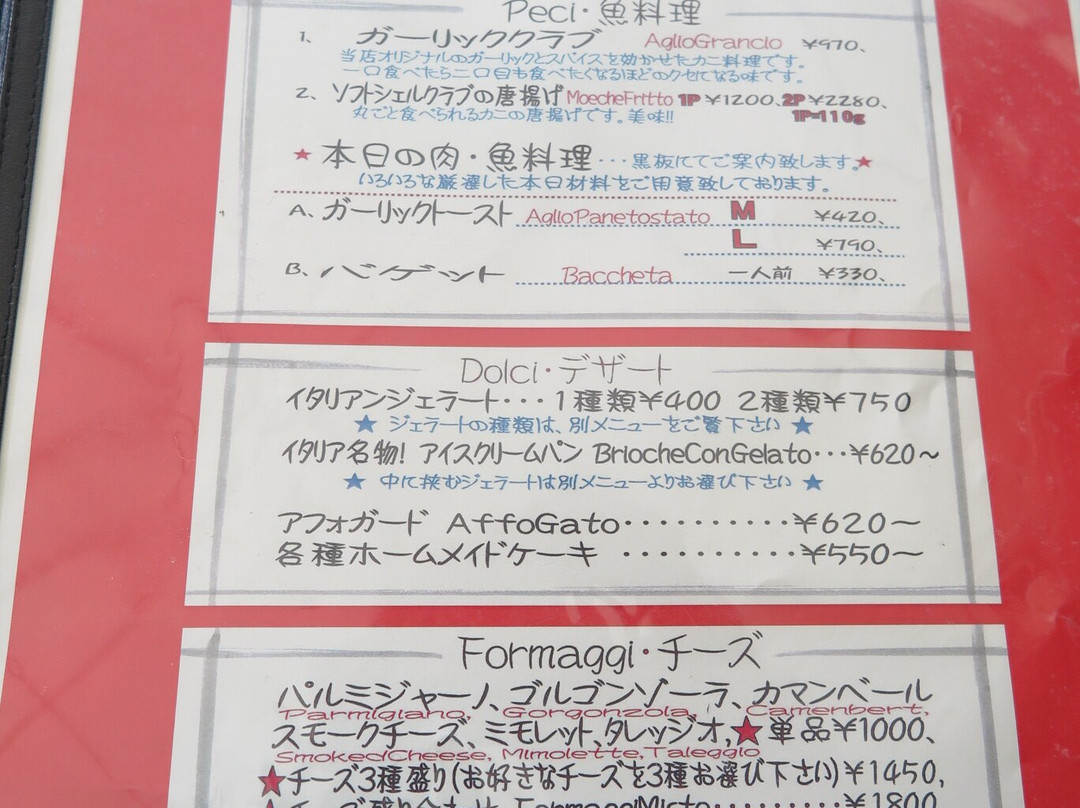 Peci・魚料理
1、 ガーリッククラブ AglioGrancio ¥970、
当店オリジナルのガーリックとスパイスを効かせたカニ料理です。
一口食べたら二口目も食べたくなるほどのクセになる味です。
2、 ソフトシェルクラブの唐揚げ MoecheFritto 1P ¥1200、2P ¥2280、
丸ごと食べられるカニの唐揚げです。美味!! 1P=110g
★本日の肉・魚料理・・・黒板にてご案内致します。★
いろいろな厳選した本日材料をご用意致しております。
A、ガーリックトースト AglioPanetostato M ¥420、
L ¥790、
B、バゲット Baccheta 一人前 ¥330、
Dolci・デザート
イタリアンジェラート・・・1種類¥400 2種類¥750
★ ジェラートの種類は、別メニューをご覧下さい ★
イタリア名物! アイスクリームパン BriocheConGelato・・・¥620～
★ 中に挟むジェラートは別メニューよりお選び下さい ★
アフォガード AffoGato・・・・・・・・・・・¥620～
各種ホームメイドケーキ ・・・・・・・・・・・¥550～
Formaggi・チーズ
パルミジャーノ、ゴルゴンゾーラ、カマンベール
Parmigiano, Gorgonzola, Camenbert,
スモークチーズ、ミモレット、タレッジオ,★単品¥1000、
SmokedCheese, Mimolette, Taleggio
★チーズ3種盛り(お好きなチーズを3種お選び下さい)¥1450,
★チーズ盛り合わせ FormaggiMisto・・・・・・・・・¥1800